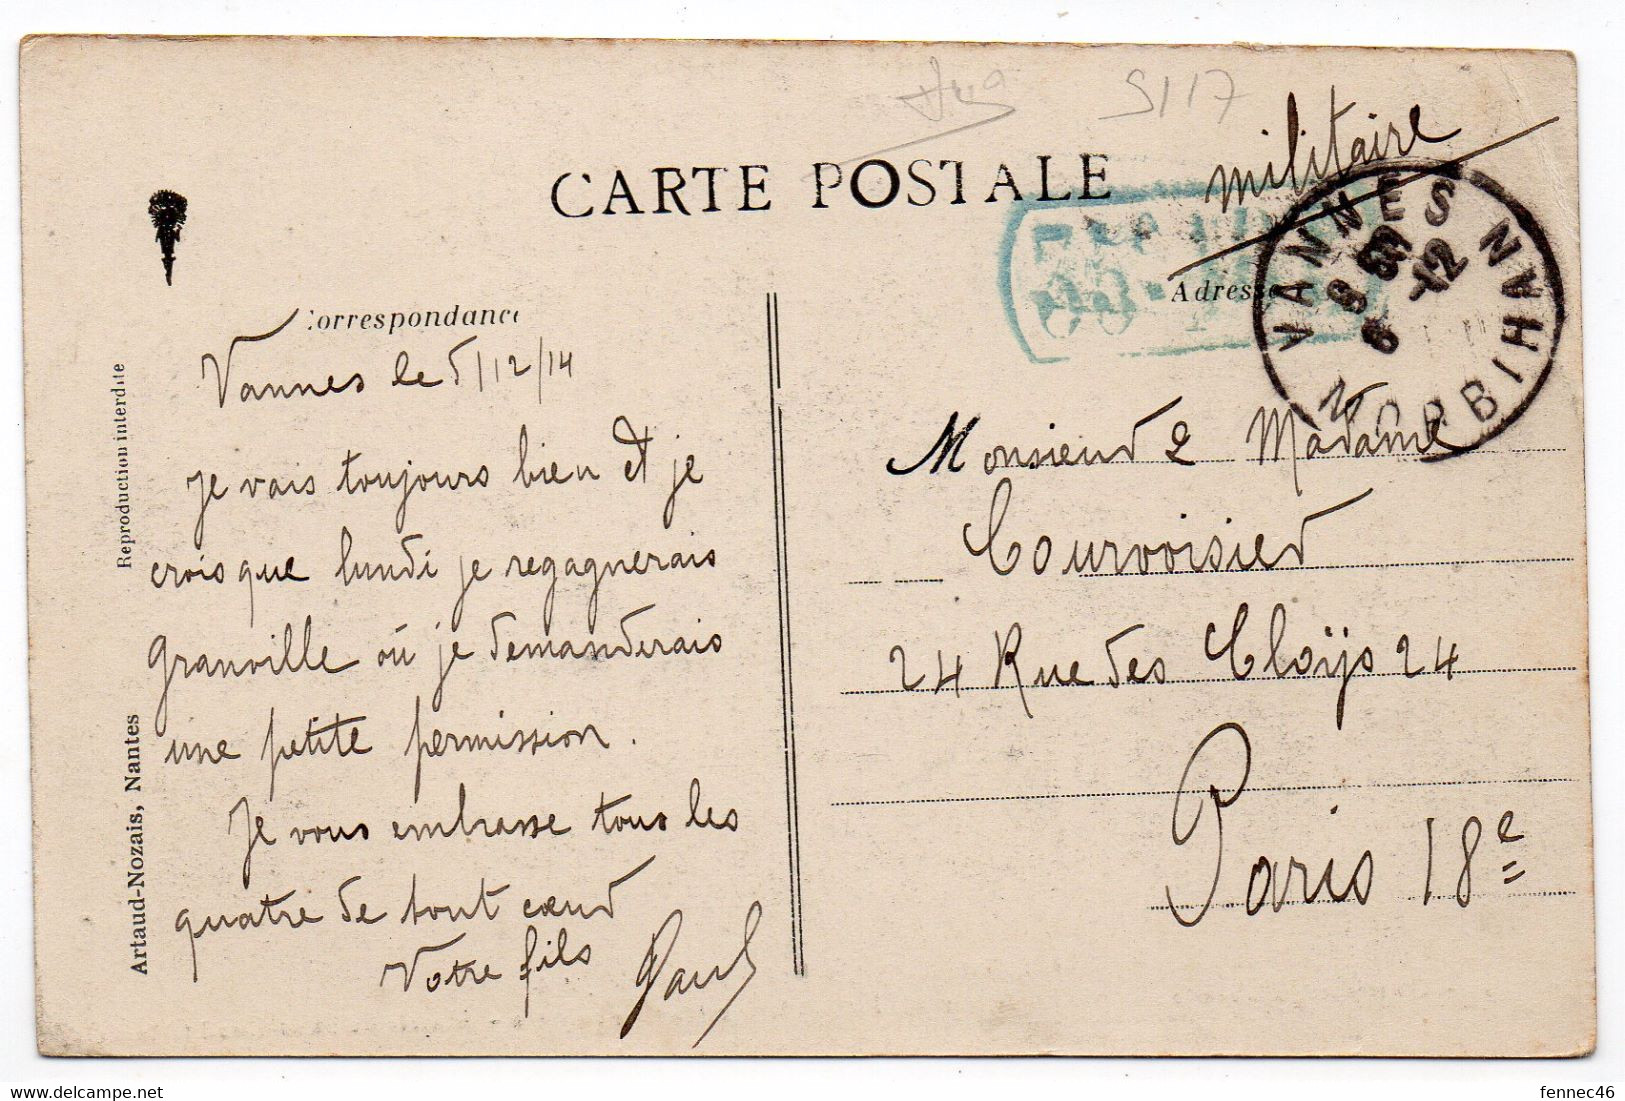 5117
militaire
CARTE POSTALE
VANNES MORBIHAN
6 -12
Correspondance
Adresse
Vannes le 5/12/14
Je vais toujours bien et je
crois que lundi je regagnerais
Granville où je demanderais
une petite permission.
Je vous embrasse tous les
quatre de tout cœur
Votre fils Paul
Monsieur & Madame
Courvoisier
24 Rue des Cloÿs 24
Paris 18e
Reproduction interdite
Artaud-Nozais, Nantes
fennec46